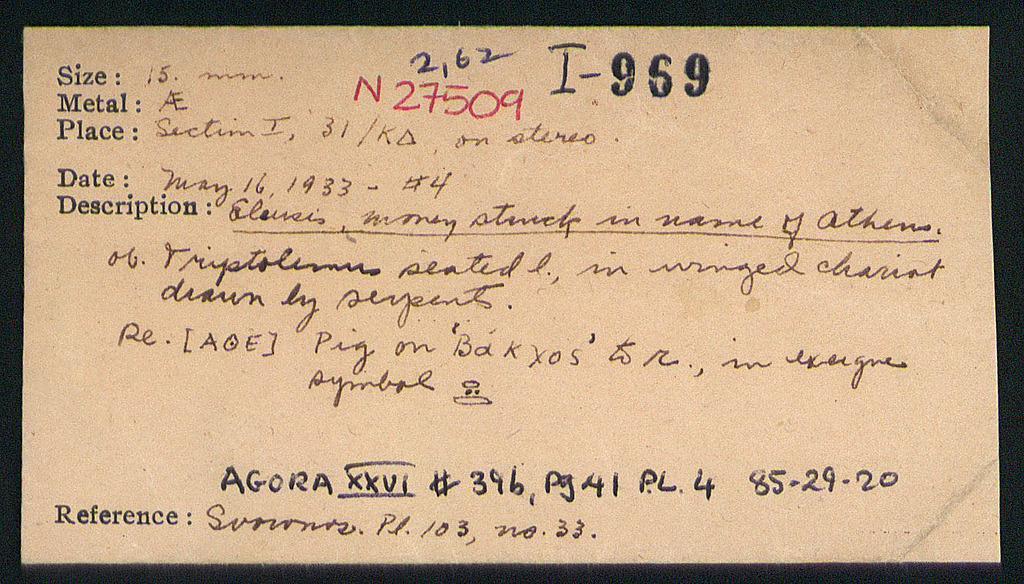 2,62 I-969
N 27509
Size : 15. mm.
Metal : Æ
Place : Section I, 31/ΚΔ, on stereo.
Date : May 16, 1933 - #4
Description : Eleusis, money struck in name of Athens.
ob. Triptolemus seated l., in winged chariot
drawn by serpents.
Re. [ΑΘΕ] Pig on 'Βάκχος' to r., in exergue
symbol
AGORA XXVI # 39b, Pg 41 PL. 4 85-29-20
Reference : Svoronos. Pl. 103, no. 33.